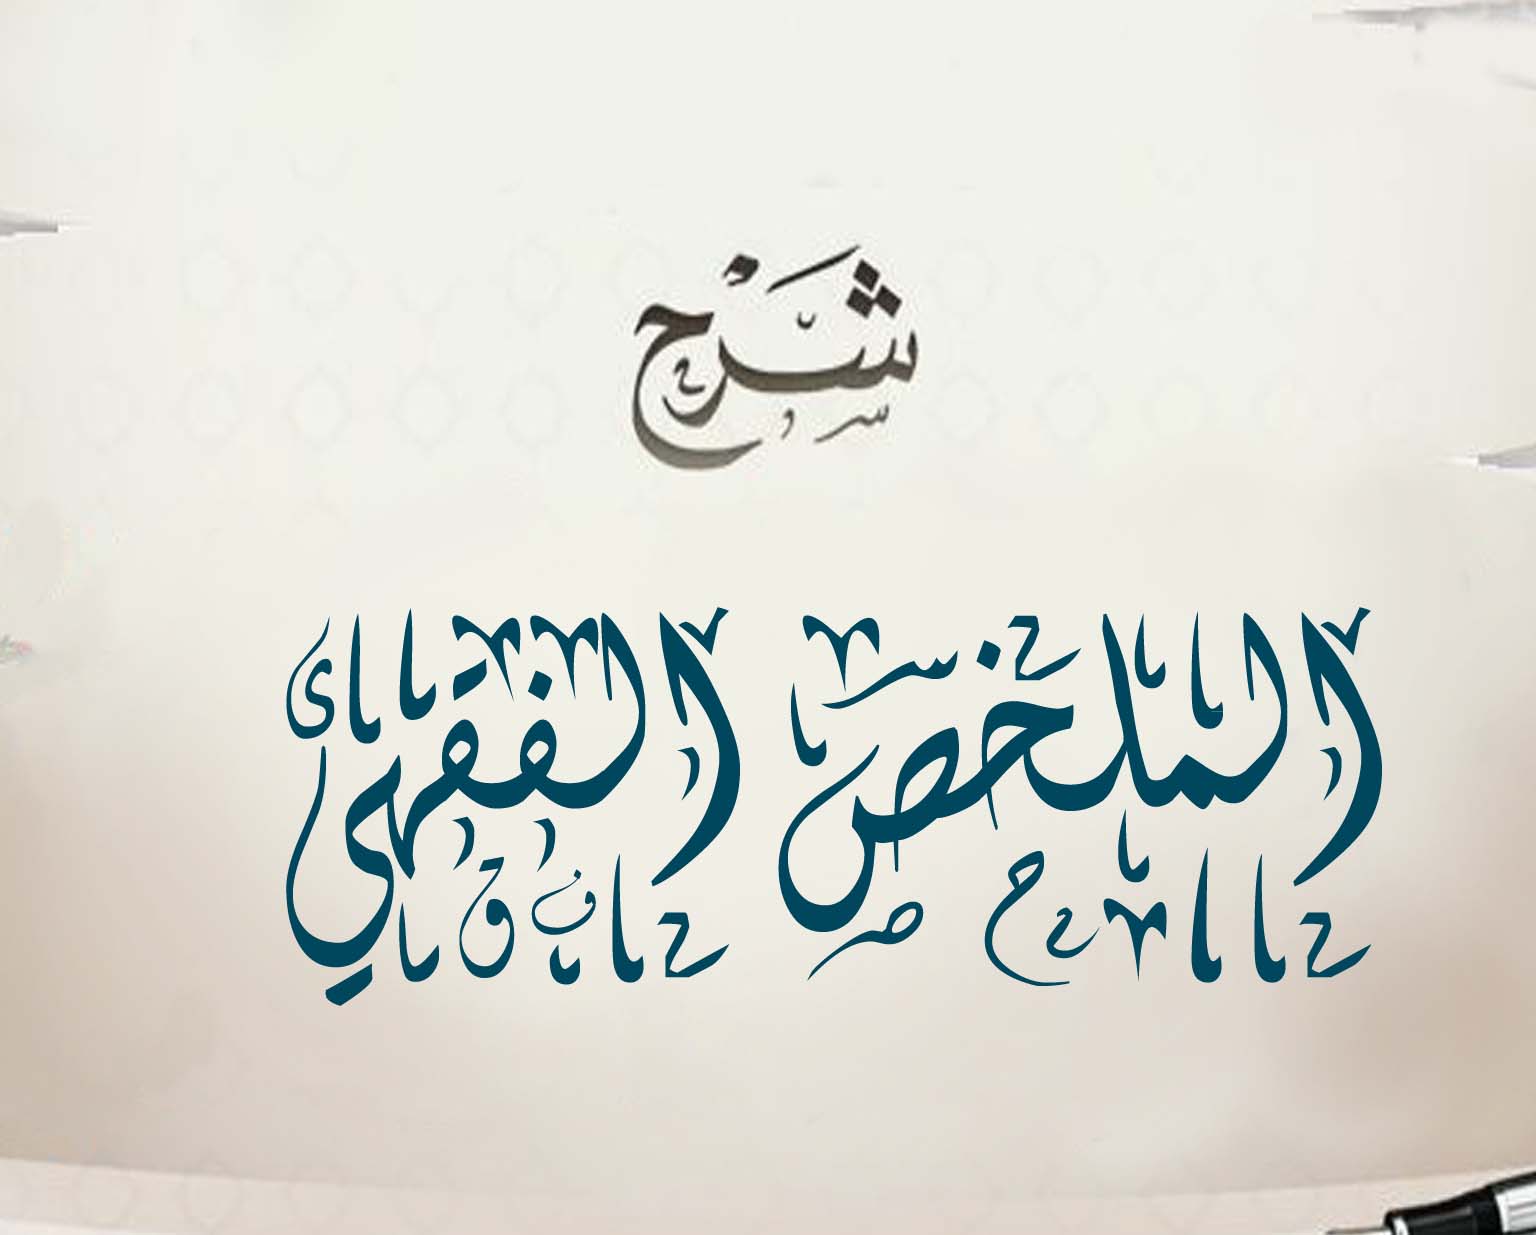 شرح
الملخص الفقهي